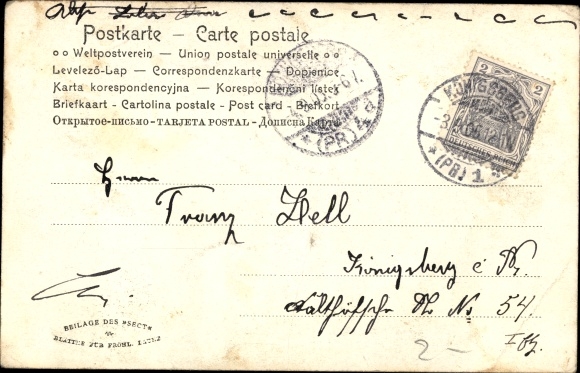 Postkarte – Carte postale
Weltpostverein – Union postale universelle
Levelező-Lap – Correspondenzkarte – Dopisnice
Karta korespondencyjna – Korespondenční listek
Briefkaart – Cartolina postale – Post card – Brefkort
Открытое-письмо – TARJETA POSTAL – Дописна Карта
2 2
KÖNIGSBERG
DEUTSCHES REICH
(PR.) 1
(PR.) 4
Herrn
Franz Hell
Königsberg i Pr.
No 54.
2–
BEILAGE DES »SECT«
BLÄTTER FÜR FRÖHL.